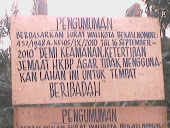 PENGUMUMAN
BERDASARKAN SURAT WALIKOTA BEKASI, NOMOR:
452/9484-KESOS/IX/2010 TGL 16 SEPTEMBER-
2010" DEMI KEAMANAN, KETERTIBAN
JEMAAT HKBP AGAR TIDAK MENGGUNA-
KAN LAHAN INI UNTUK TEMPAT
BERIBADAH"
PENGUMUMAN
BERDASARKAN SURAT WALIKOTA BEKASI, NOMOR: